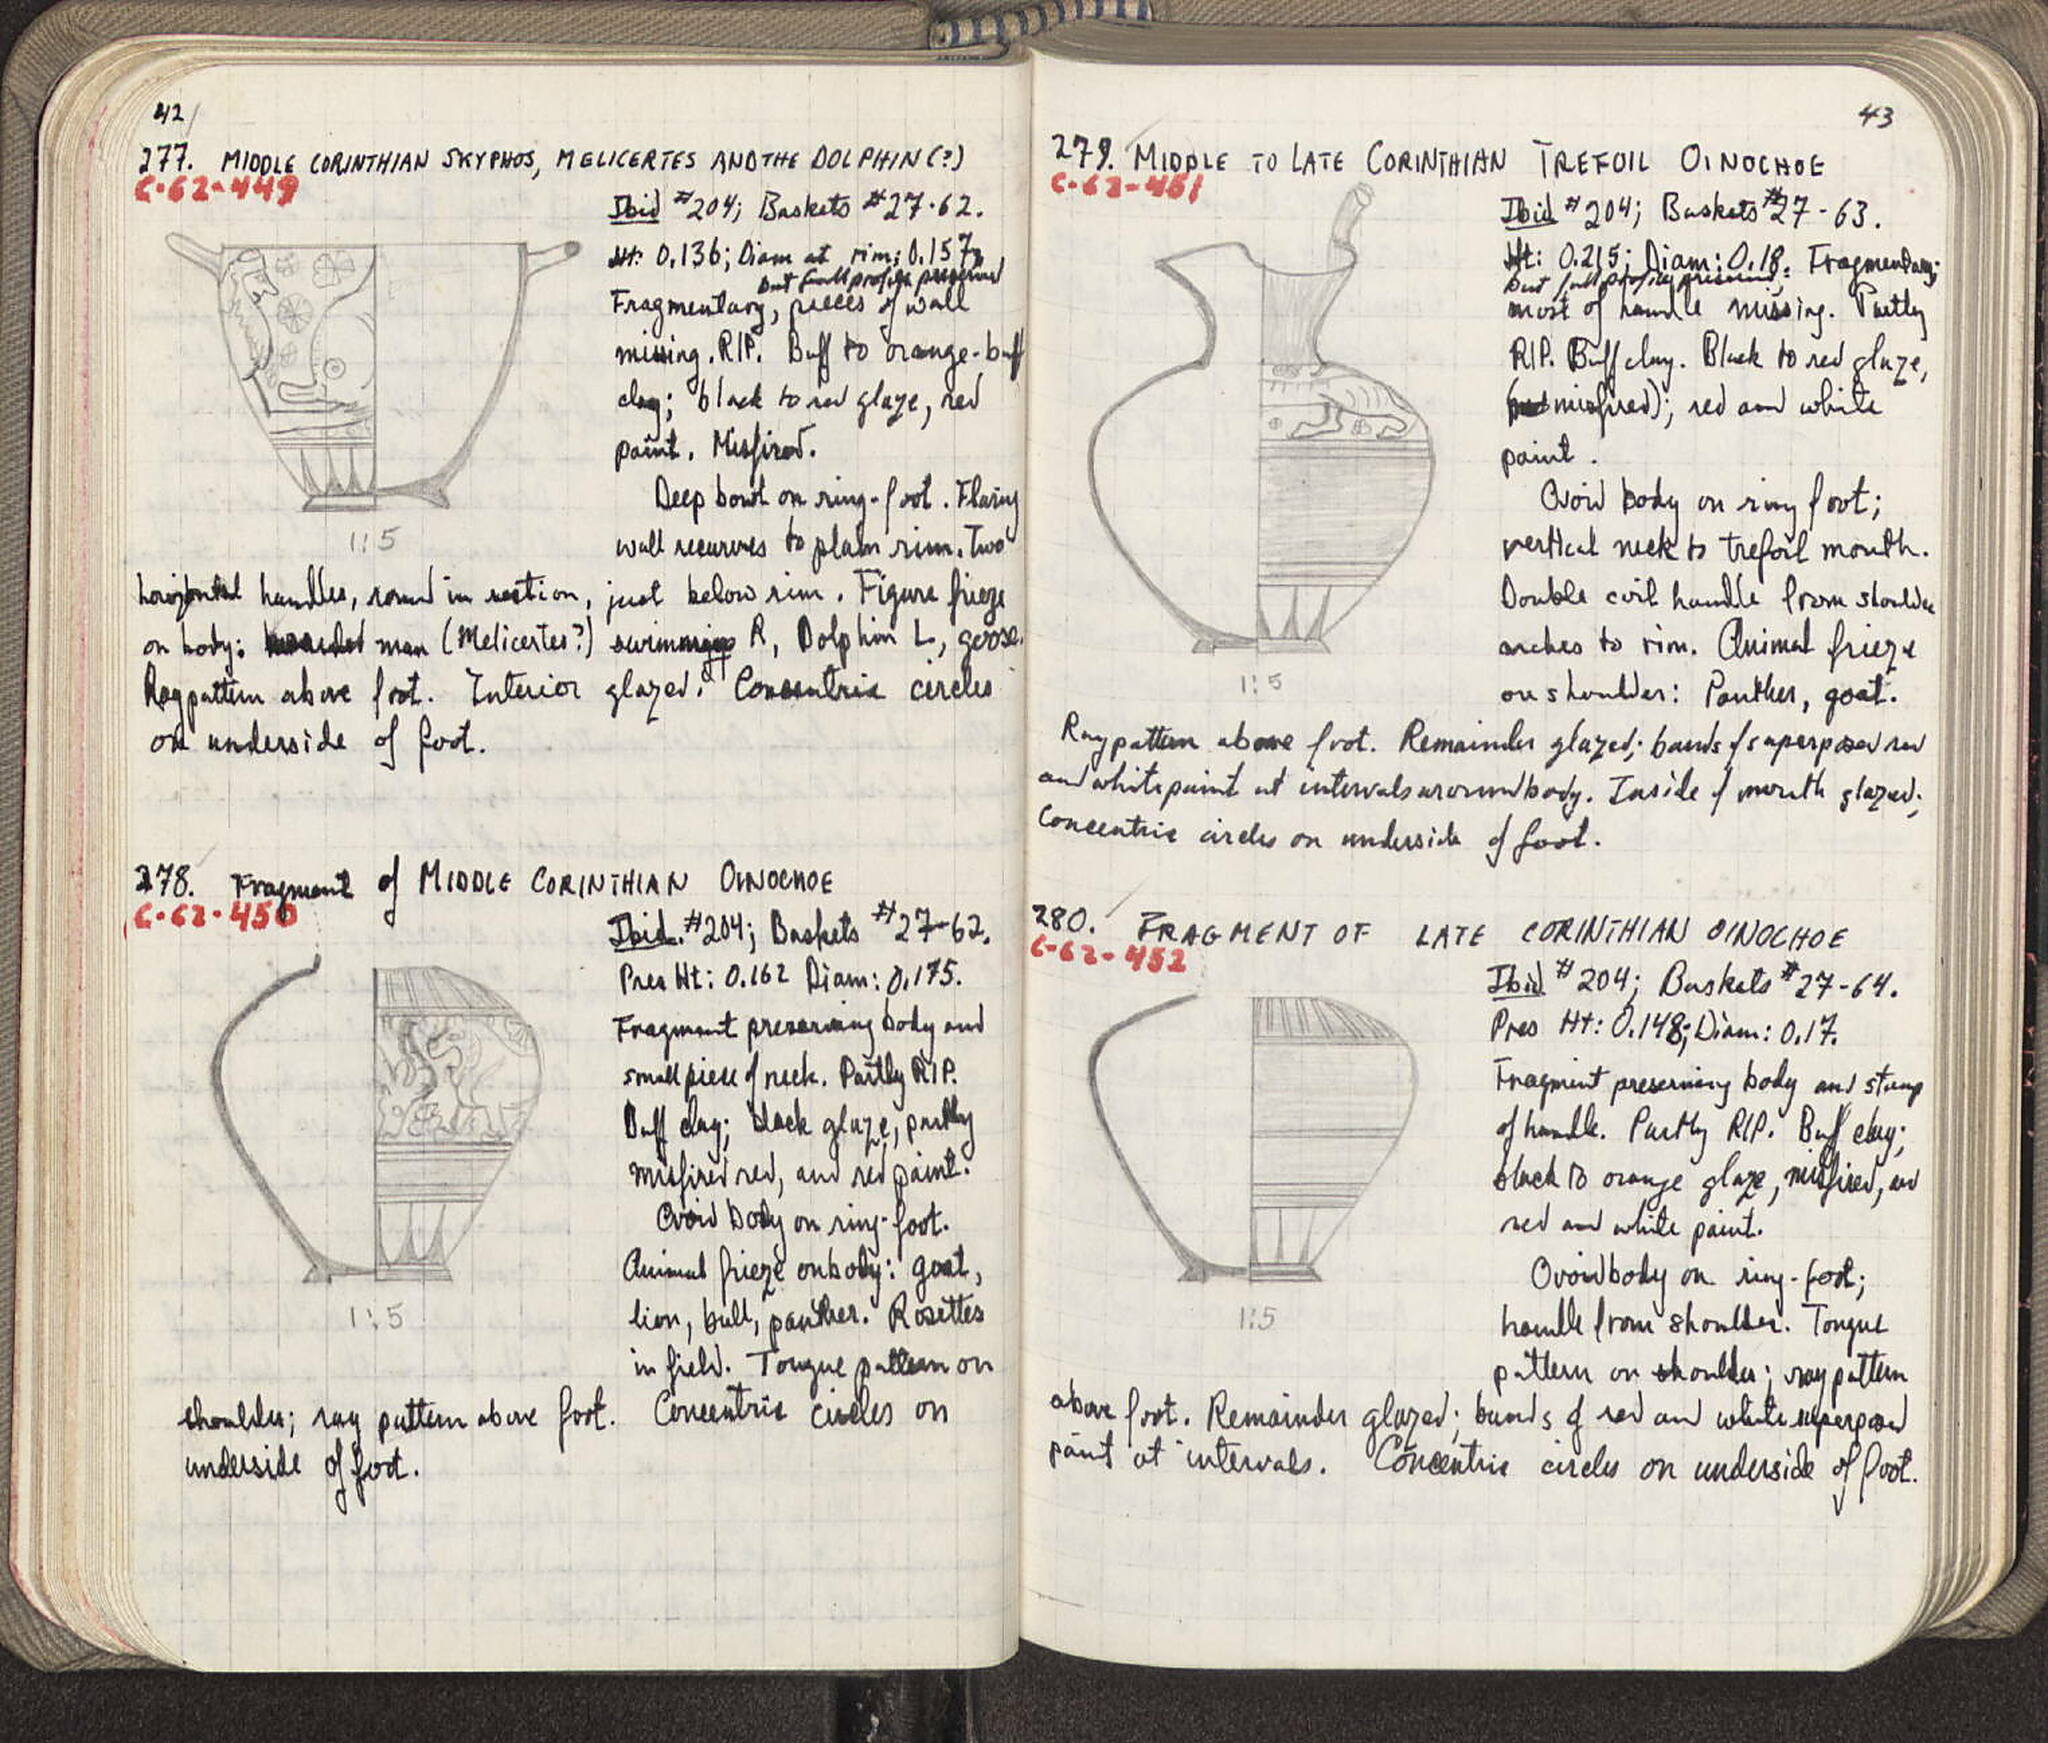 42
277. MIDDLE CORINTHIAN SKYPHOS, MELICERTES AND THE DOLPHIN (?)
C-62-449
Ibid #204; Baskets #27-62.
Ht: 0.136; Diam at rim: 0.157;
but full profile preserved
Fragmentary, pieces of wall
missing. RIP. Buff to orange-buff
clay; black to red glaze, red
paint. Misfired.
Deep bowl on ring-foot. Flaring
wall recurves to plain rim. Two
1:5
horizontal handles, round in section, just below rim. Figure frieze
on body: man (Melicertes?) swimming R, Dolphin L, goose.
Ray pattern above foot. Interior glazed. Concentric circles
on underside of foot.
278. Fragment of MIDDLE CORINTHIAN OINOCHOE
C-62-450
Ibid. #204; Baskets #27-62.
Pres Ht: 0.162 Diam: 0.175.
Fragment preserving body and
small piece of neck. Partly RIP.
Buff clay; black glaze, partly
misfired red, and red paint.
Ovoid body on ring-foot.
Animal frieze on body: goat,
lion, bull, panther. Rosettes
1:5
in field. Tongue pattern on
shoulder; ray pattern above foot. Concentric circles on
underside of foot.
43
279. MIDDLE TO LATE CORINTHIAN TREFOIL OINOCHOE
C-62-451
Ibid #204; Baskets #27-63.
Ht: 0.215; Diam: 0.18. Fragmentary;
but full profile preserved,
most of handle missing. Partly
RIP. Buff clay. Black to red glaze,
(misfired); red and white
paint.
Ovoid body on ring foot;
vertical neck to trefoil mouth.
Double coil handle from shoulder
arches to rim. Animal frieze
on shoulder: Panther, goat.
1:5
Ray pattern above foot. Remainder glazed; bands of superposed red
and white paint at intervals around body. Inside of mouth glazed;
Concentric circles on underside of foot.
280. FRAGMENT OF LATE CORINTHIAN OINOCHOE
C-62-452
Ibid #204; Baskets #27-64.
Pres Ht: 0.148; Diam: 0.17.
Fragment preserving body and stump
of handle. Partly RIP. Buff clay;
black to orange glaze, misfired, and
red and white paint.
Ovoid body on ring-foot;
handle from shoulder. Tongue
1:5
pattern on shoulder; ray pattern
above foot. Remainder glazed; bands of red and white superposed
paint at intervals. Concentric circles on underside of foot.